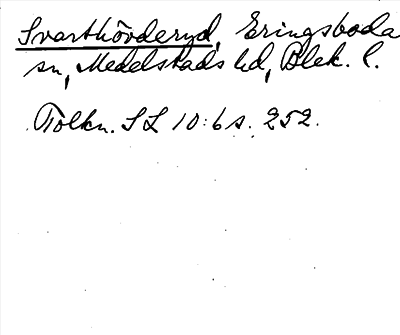 Svarthövderyd, Eringsboda
sn, Medelstads hd, Blek. l.
Tolkn. SL 10:6 s. 252.